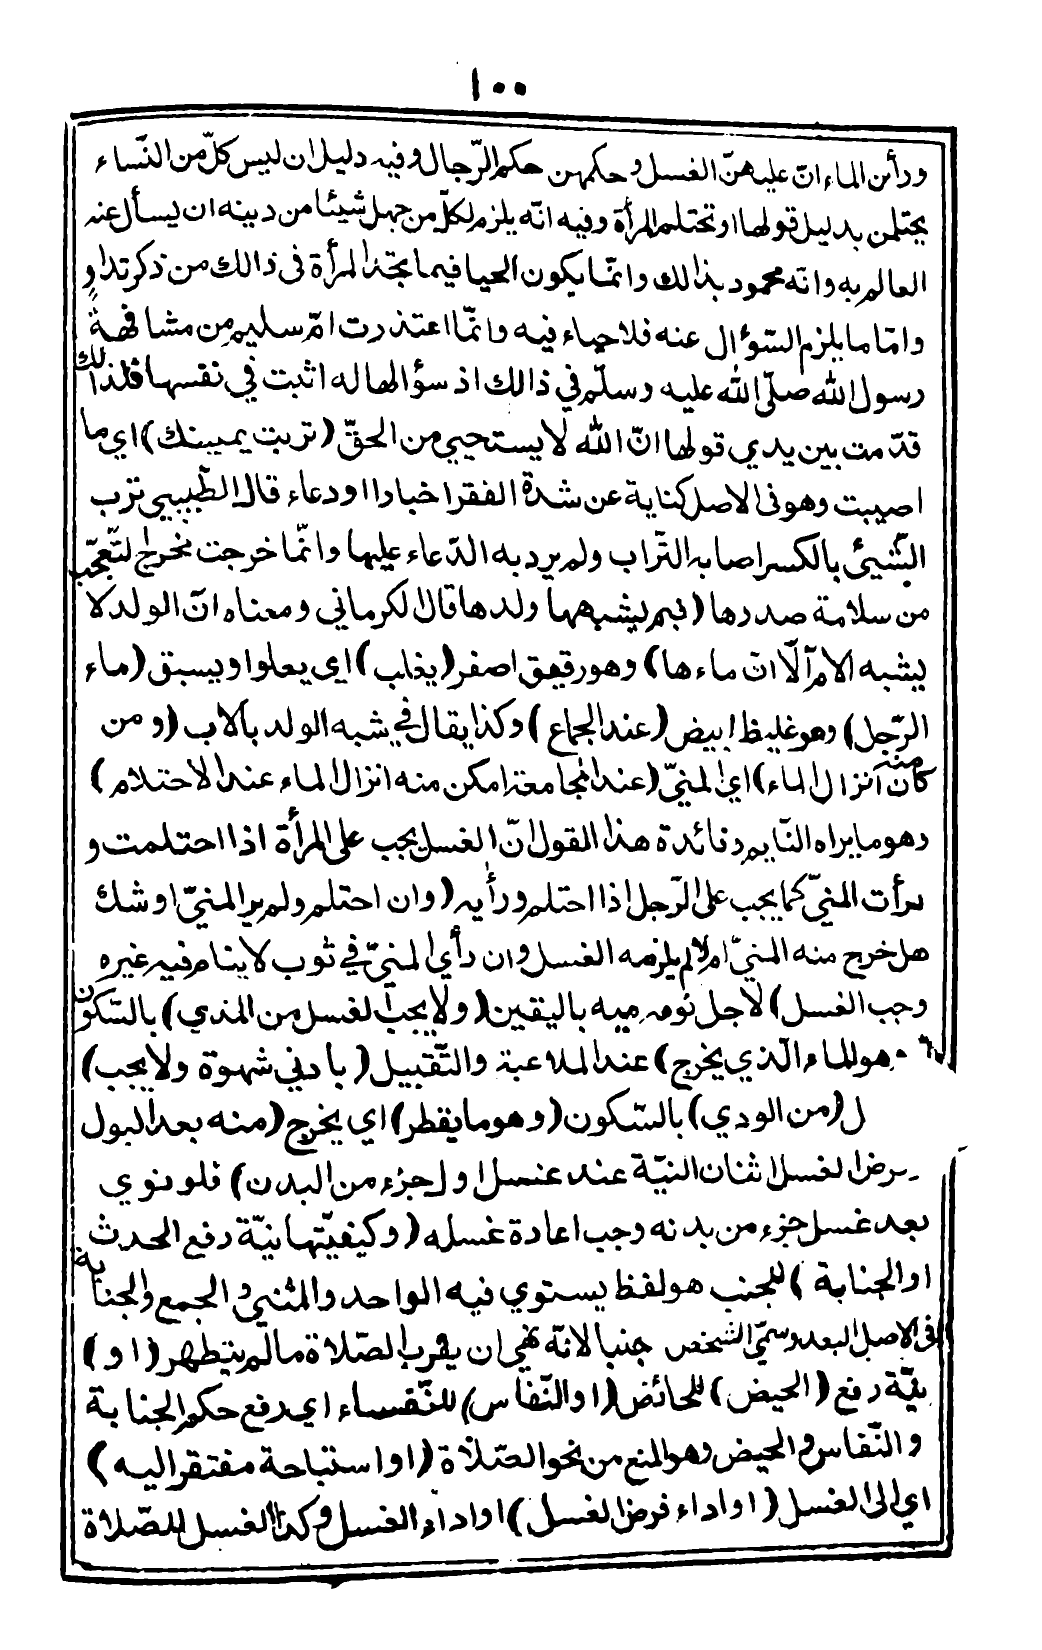 ١٠٠
ورأين الماء انّ عليهنّ الغسل وحكمهن حكم الرّجال وفيه دليل ان ليس كلّ من النّساء
يحتلمن بدليل قولها او تحتلم المرأة وفيه انّه يلزم لكلّ من جهل شيئا من دينه ان يسأل عنه
العالم به وانّه محمود بذالك وانّما يكون الحيا فيما تجد المرأة فى ذالك من ذكرته او
وامّا ما يلزم السّؤال عنه فلا حياء فيه وانّما اعتذرت امّ سليم من مشافهة
رسول الله صلّى الله عليه وسلّم في ذالك اذ سؤالها له اثبت في نفسها فلذالك
قدّمت بين يدي قولها انّ الله لا يستحيي من الحقّ (تربت يمينك) اي ما
اصيبت وهو فى الاصل كناية عن شدة الفقر اخبارا او دعاء قال الطّيبي ترب
الشّيئ بالكسر اصابه التّراب ولم يرد به الدّعاء عليها وانّما خرجت مخرج التّعجّب
من سلامة صدرها (فبم يشبهها ولدها قال الكرماني ومعناه انّ الولد لا
يشبه الامّ الّا انّ ماءها) وهو رقيق اصفر (يغلب) اي يعلوا ويسبق (ماء
الرّجل) وهو غليظ ابيض (عند الجماع) وكذا يقال في شبه الولد بالاب (ومن
كان منه انزال الماء) اي المنيّ (عند المجامعة امكن منه انزال الماء عند الاحتلام)
وهو ما يراه النّايم وفائدة هذا القول انّ الغسل يجب على المرأة اذا احتلمت و
رأت المنيّ كما يجب على الرّجل اذا احتلم ورأيه (وان احتلم ولم ير المنيّ او شك
هل خرج منه المنيّ ام لا لم يلزمه الغسل وان رأي المنيّ في ثوب لا ينام فيه غيره
وجب الغسل) لاجل نومه فيه باليقين (ولا يجب الغسل من المذي) بالسّكون
هو الماء الّذي يخرج) عند الملاعبة والتّقبيل (بادني شهوة ولا يجب)
ل (من الودي) بالسّكون (وهو ما يقطر) اي يخرج (منه بعد البول
رض الغسل اثنان النيّة عند غسل اول جزء من البدن) فلو نوي
بعد غسل جزء من بدنه وجب اعادة غسله (وكيفيّتها نيّة رفع الحدث
او الجنابة) للجنب هو لفظ يستوي فيه الواحد والمثني والجمع والجنابة
فى الاصل البعد وسمّي الشّخص جنبا لانّه نهي ان يقرب الصّلاة ما لم يتطهر (او)
نيّة رفع (الحيض) للحائض (او النّفاس) للنّفساء اي رفع حكم الجنابة
والنّفاس والحيض وهو المنع من نحو الصّلاة (او استباحة مفتقر اليه)
اي الى الغسل (او اداء فرض الغسل) او اداء الغسل وكذا الغسل للصّلاة